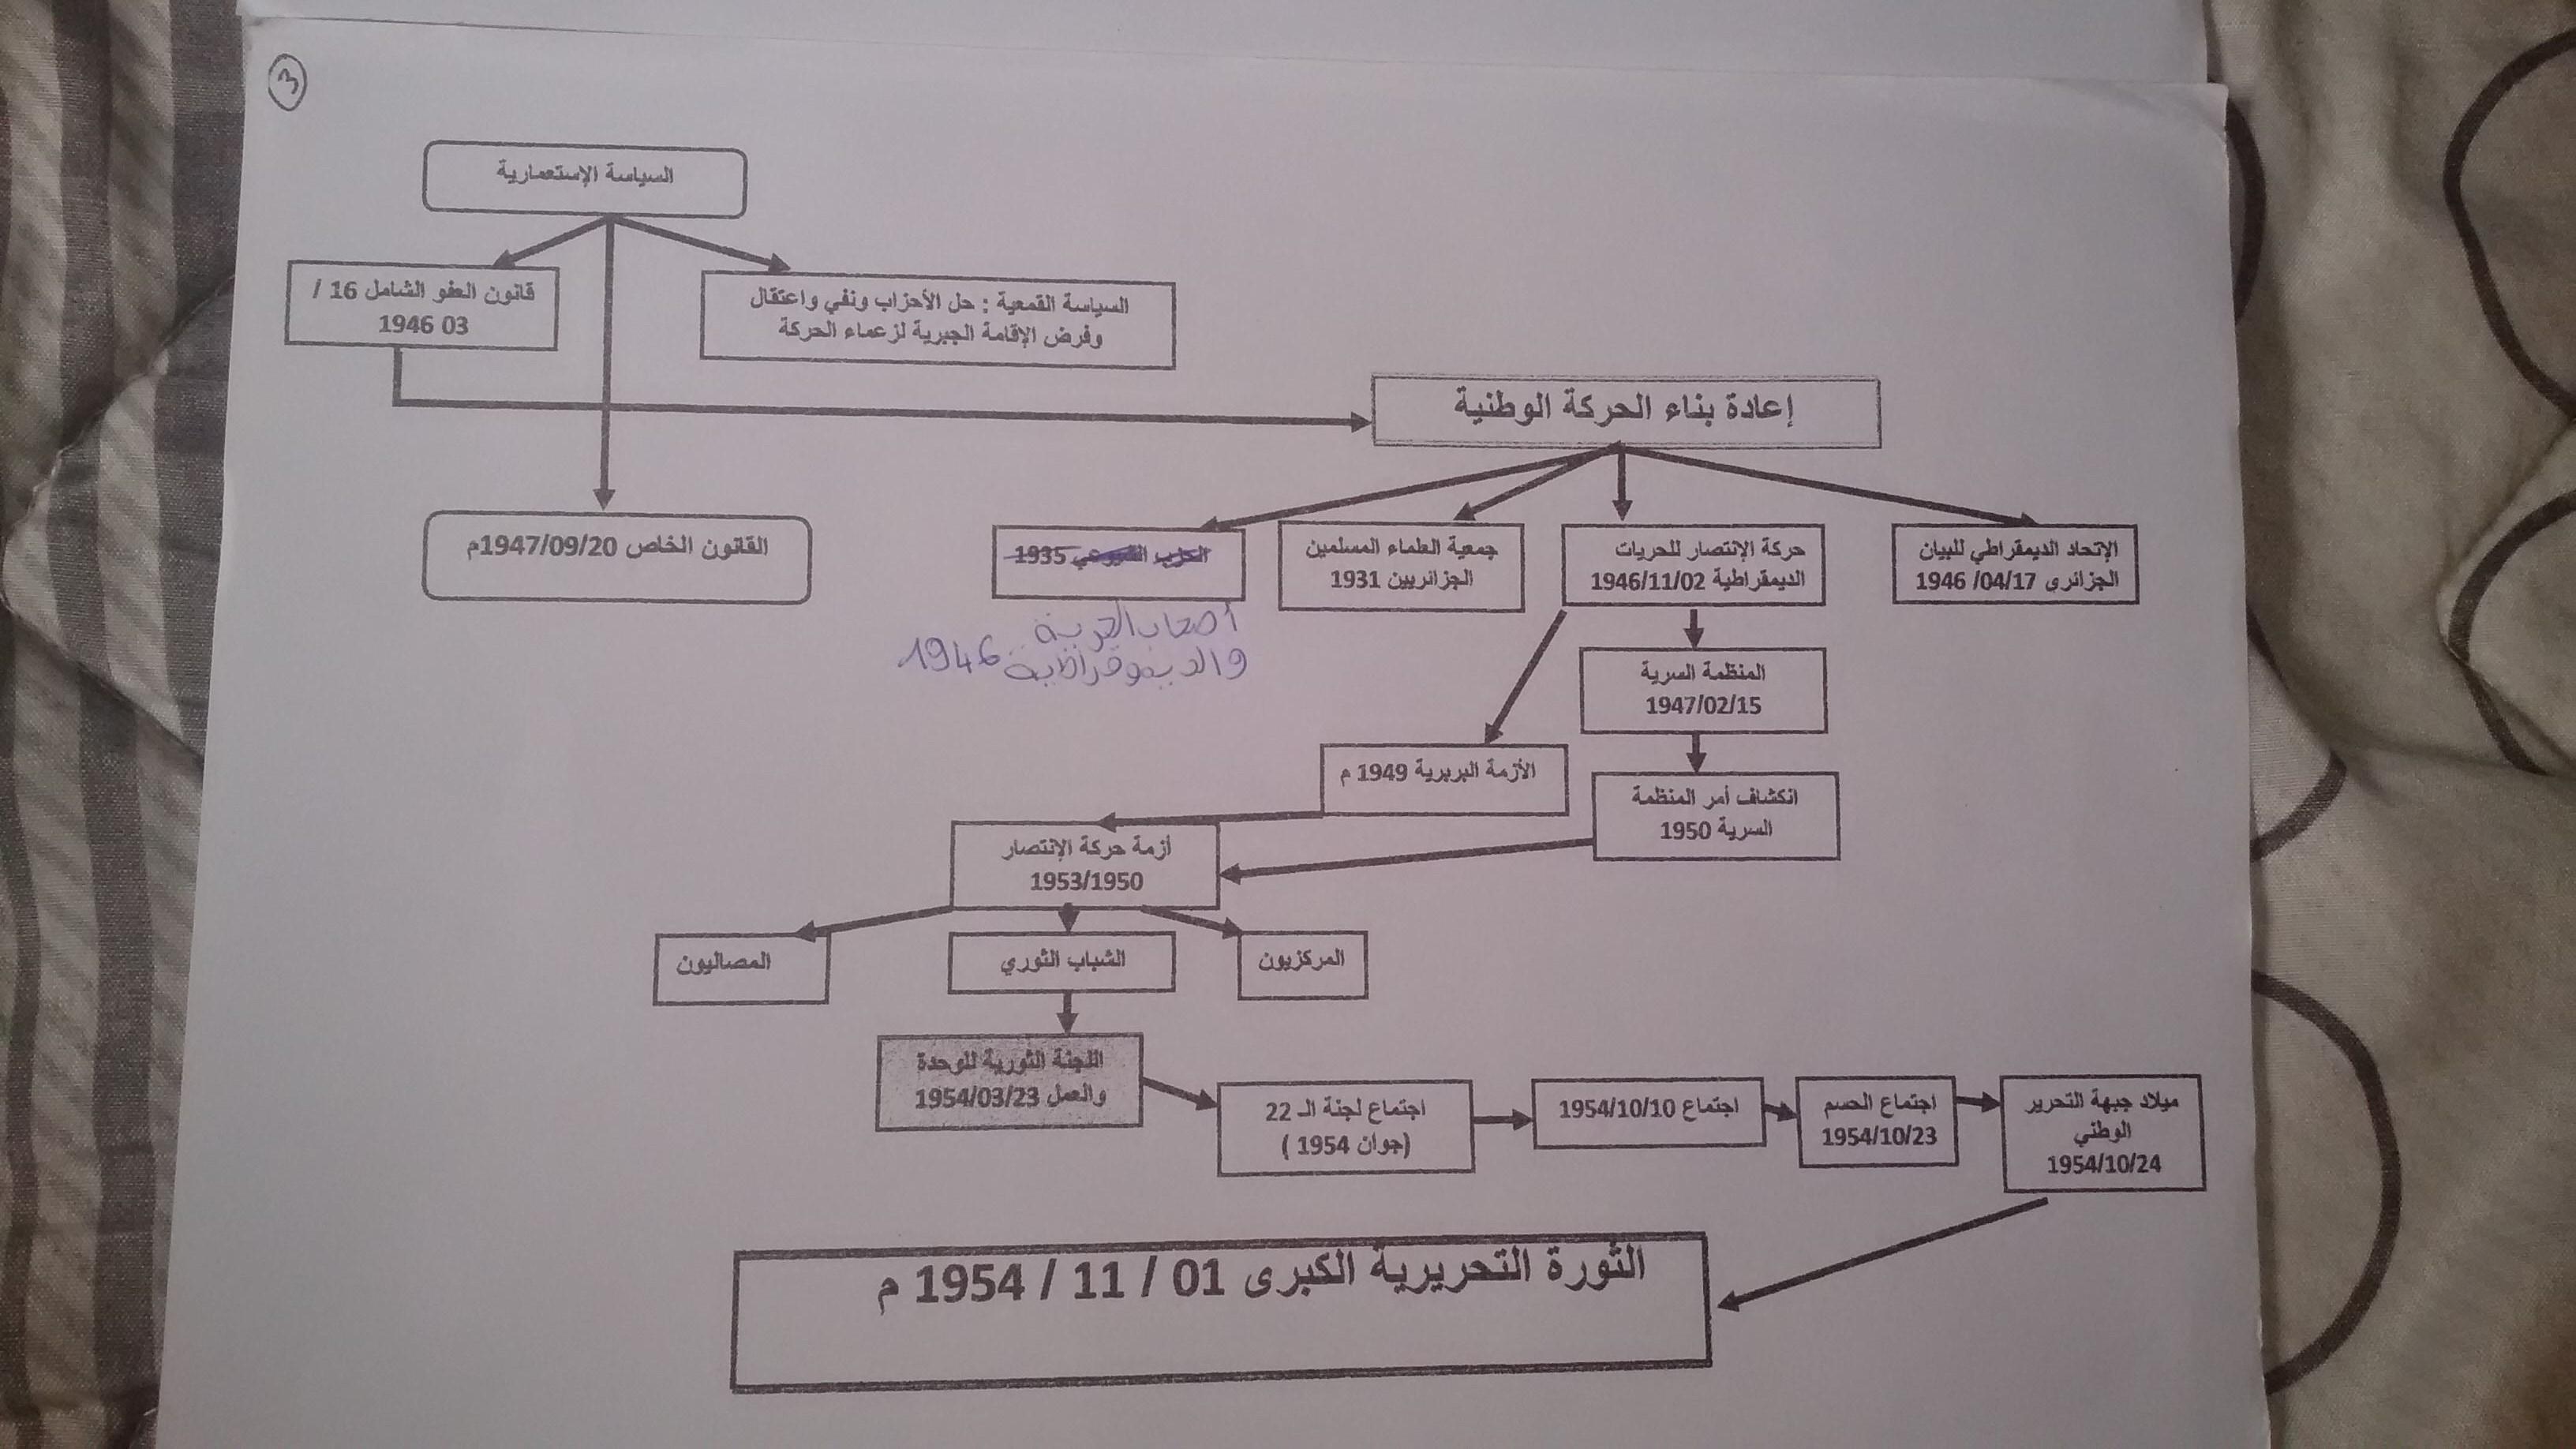 3
السياسة الإستعمارية
قانون العفو الشامل 16 /
03 1946
السياسة القمعية : حل الأحزاب ونفي واعتقال
وفرض الإقامة الجبرية لزعماء الحركة
إعادة بناء الحركة الوطنية
الإتحاد الديمقراطي للبيان
الجزائري 04/17/ 1946
حركة الإنتصار للحريات
الديمقراطية 1946/11/02
جمعية العلماء المسلمين
الجزائريين 1931
الحزب الشيوعي 1935
أصحاب الحرية
والديموقراطية 1946
القانون الخاص 1947/09/20م
المنظمة السرية
1947/02/15
الأزمة البربرية 1949 م
انكشاف أمر المنظمة
السرية 1950
أزمة حركة الإنتصار
1953/1950
المركزيون
الشباب الثوري
المصاليون
اللجنة الثورية للوحدة
والعمل 1954/03/23
اجتماع لجنة الـ 22
(جوان 1954 )
اجتماع 1954/10/10
اجتماع الحسم
1954/10/23
ميلاد جبهة التحرير
الوطني
1954/10/24
الثورة التحريرية الكبرى 01 / 11 / 1954 م